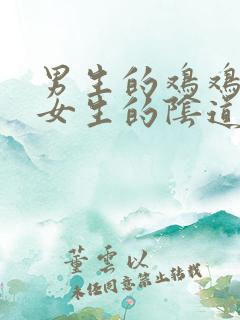 男生的鸡鸡
女生的陰道
董雲以
未经同意禁止转载